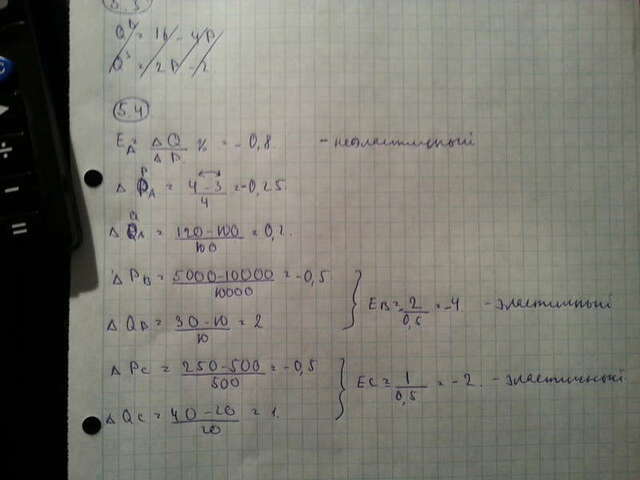 5.3
Q^d = 16 - 4P
Q^s = 2P - 2
5.4
E_A = ΔQ/ΔP % = -0,8 - неэластичный
ΔP_A = (4-3)/4 = -0,25
ΔQ_A = (120-100)/100 = 0,2.
ΔP_B = (5000-10000)/10000 = -0,5
ΔQ_B = (30-10)/10 = 2
E_B = 2/-0,5 = -4 - эластичный
ΔP_C = (250-500)/500 = -0,5
ΔQ_C = (40-20)/20 = 1
E_C = 1/0,5 = -2 - эластичный